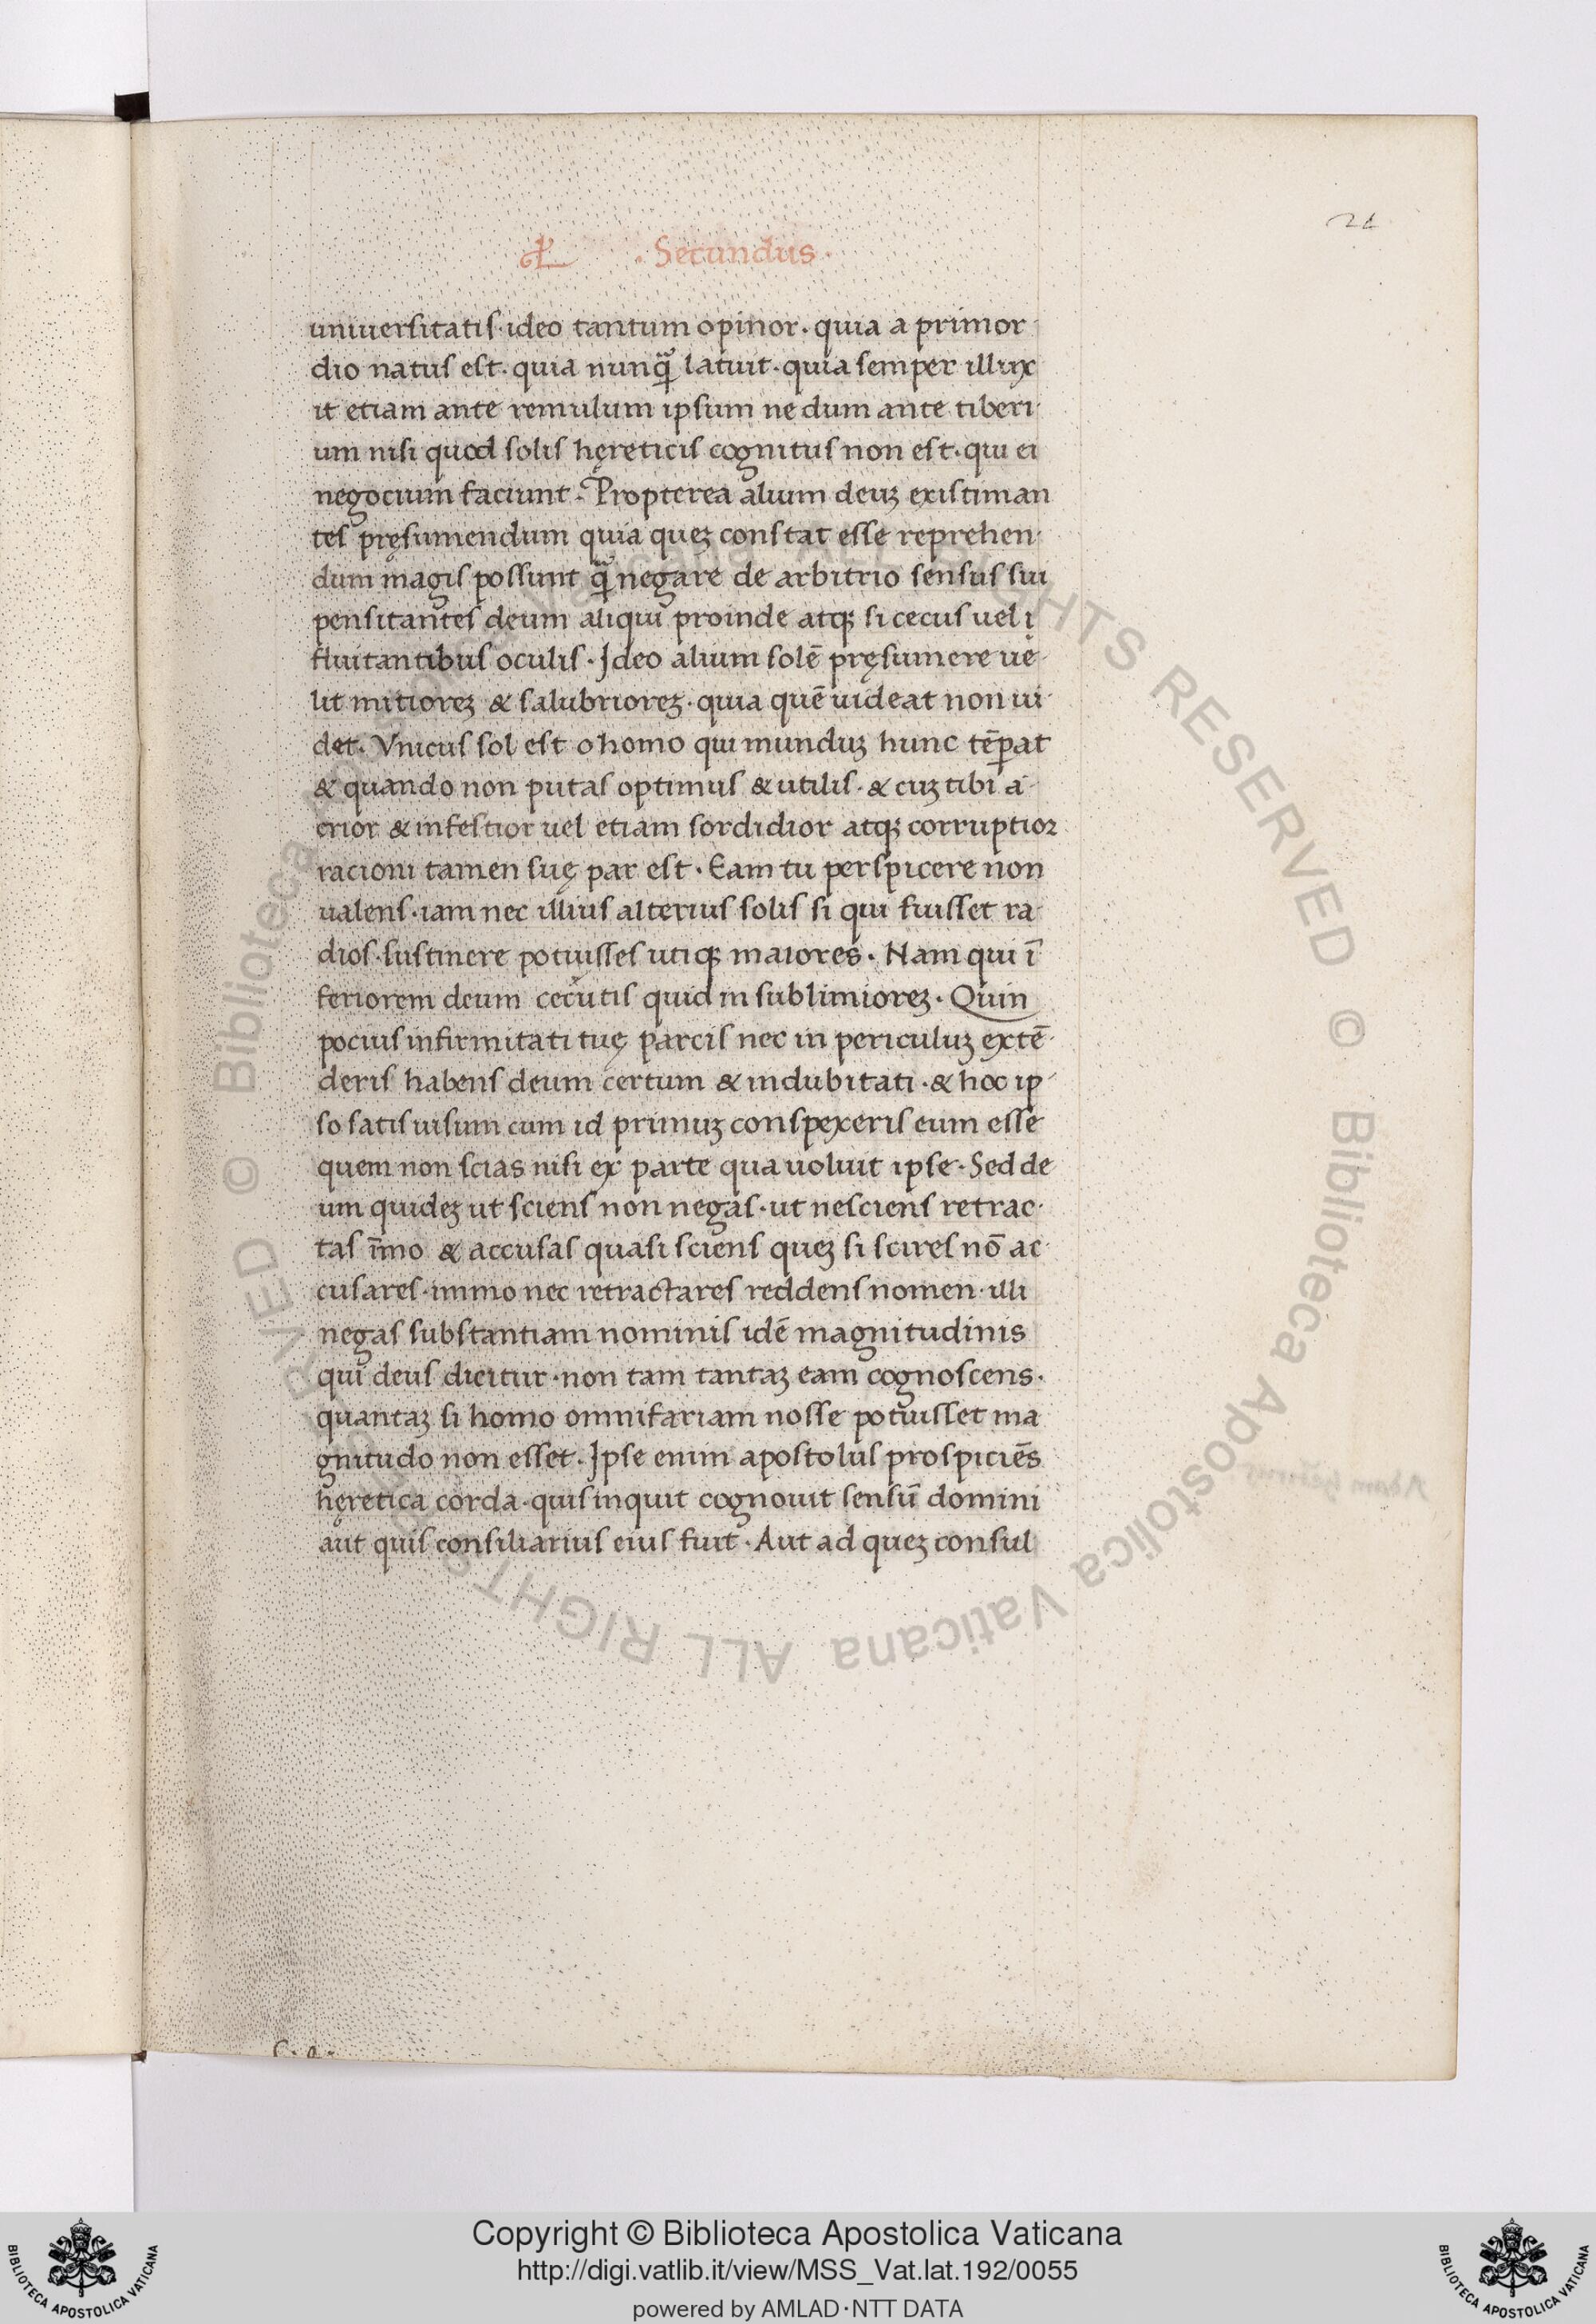 24
L̃ · Secundus ·
uniuersitatis· ideo tantum opinor· quia a primor-
dio natus est· quia nunq̃ latuit· quia semper illux
it etiam ante remulum ipsum ne dum ante tiberi
um nisi quod solis hęreticis cognitus non est· qui ei
negocium faciunt· Propterea alium deuʒ existiman
tes pręsumendum quia queʒ constat esse reprehen-
dum magis possunt q̃ negare de arbitrio sensus sui
pensitantes deum aliqui proinde atqʒ si cecus uel i
fluitantibus oculis· Ideo alium solē pręsumere ue-
lit mitioreʒ & salubrioreʒ· quia quē uideat non ui-
det· Vnicus sol est o homo qui munduʒ hunc tēperat
& quando non putas optimus & utilis· & cuʒ tibi a-
crior & infestior uel etiam sordidior atqʒ corruptior
racioni tamen suę par est· Eam tu perspicere non
ualens· iam nec illius alterius solis si qui fuisset ra-
dios· sustinere potuisses utiqʒ maiores· Nam qui ī
feriorem deum cecutis quid in sublimioreʒ· Quin
pocius infirmitati tuę parcis nec in periculuʒ extē-
deris habens deum certum & indubitati· & hoc ip-
so satis uisum cum id primuʒ conspexeris eum esse
quem non scias nisi ex parte qua uoluit ipse· Sed de
um quideʒ ut sciens non negas· ut nesciens retrac-
tas īmo & accusas quasi sciens queʒ si scires nō ac-
cusares· immo nec retractares reddens nomen· illi
negas substantiam nominis idē magnitudinis
qui deus dicitur· non tam tantaʒ eam cognoscens·
quantaʒ si homo omnifariam nosse potuisset ma
gnitudo non esset· Ipse enim apostolus prospiciēs
hęretica corda· quis inquit cognouit sensū domini
aut quis consiliarius eius fuit· Aut ad queʒ consul
© Biblioteca Apostolica Vaticana ALL RIGHTS RESERVED © Biblioteca Apostolica Vaticana ALL RIGHTS RESERVED
Copyright © Biblioteca Apostolica Vaticana
http://digi.vatlib.it/view/MSS_Vat.lat.192/0055
powered by AMLAD·NTT DATA
BIBLIOTECA APOSTOLICA VATICANA
BIBLIOTECA APOSTOLICA VATICANA